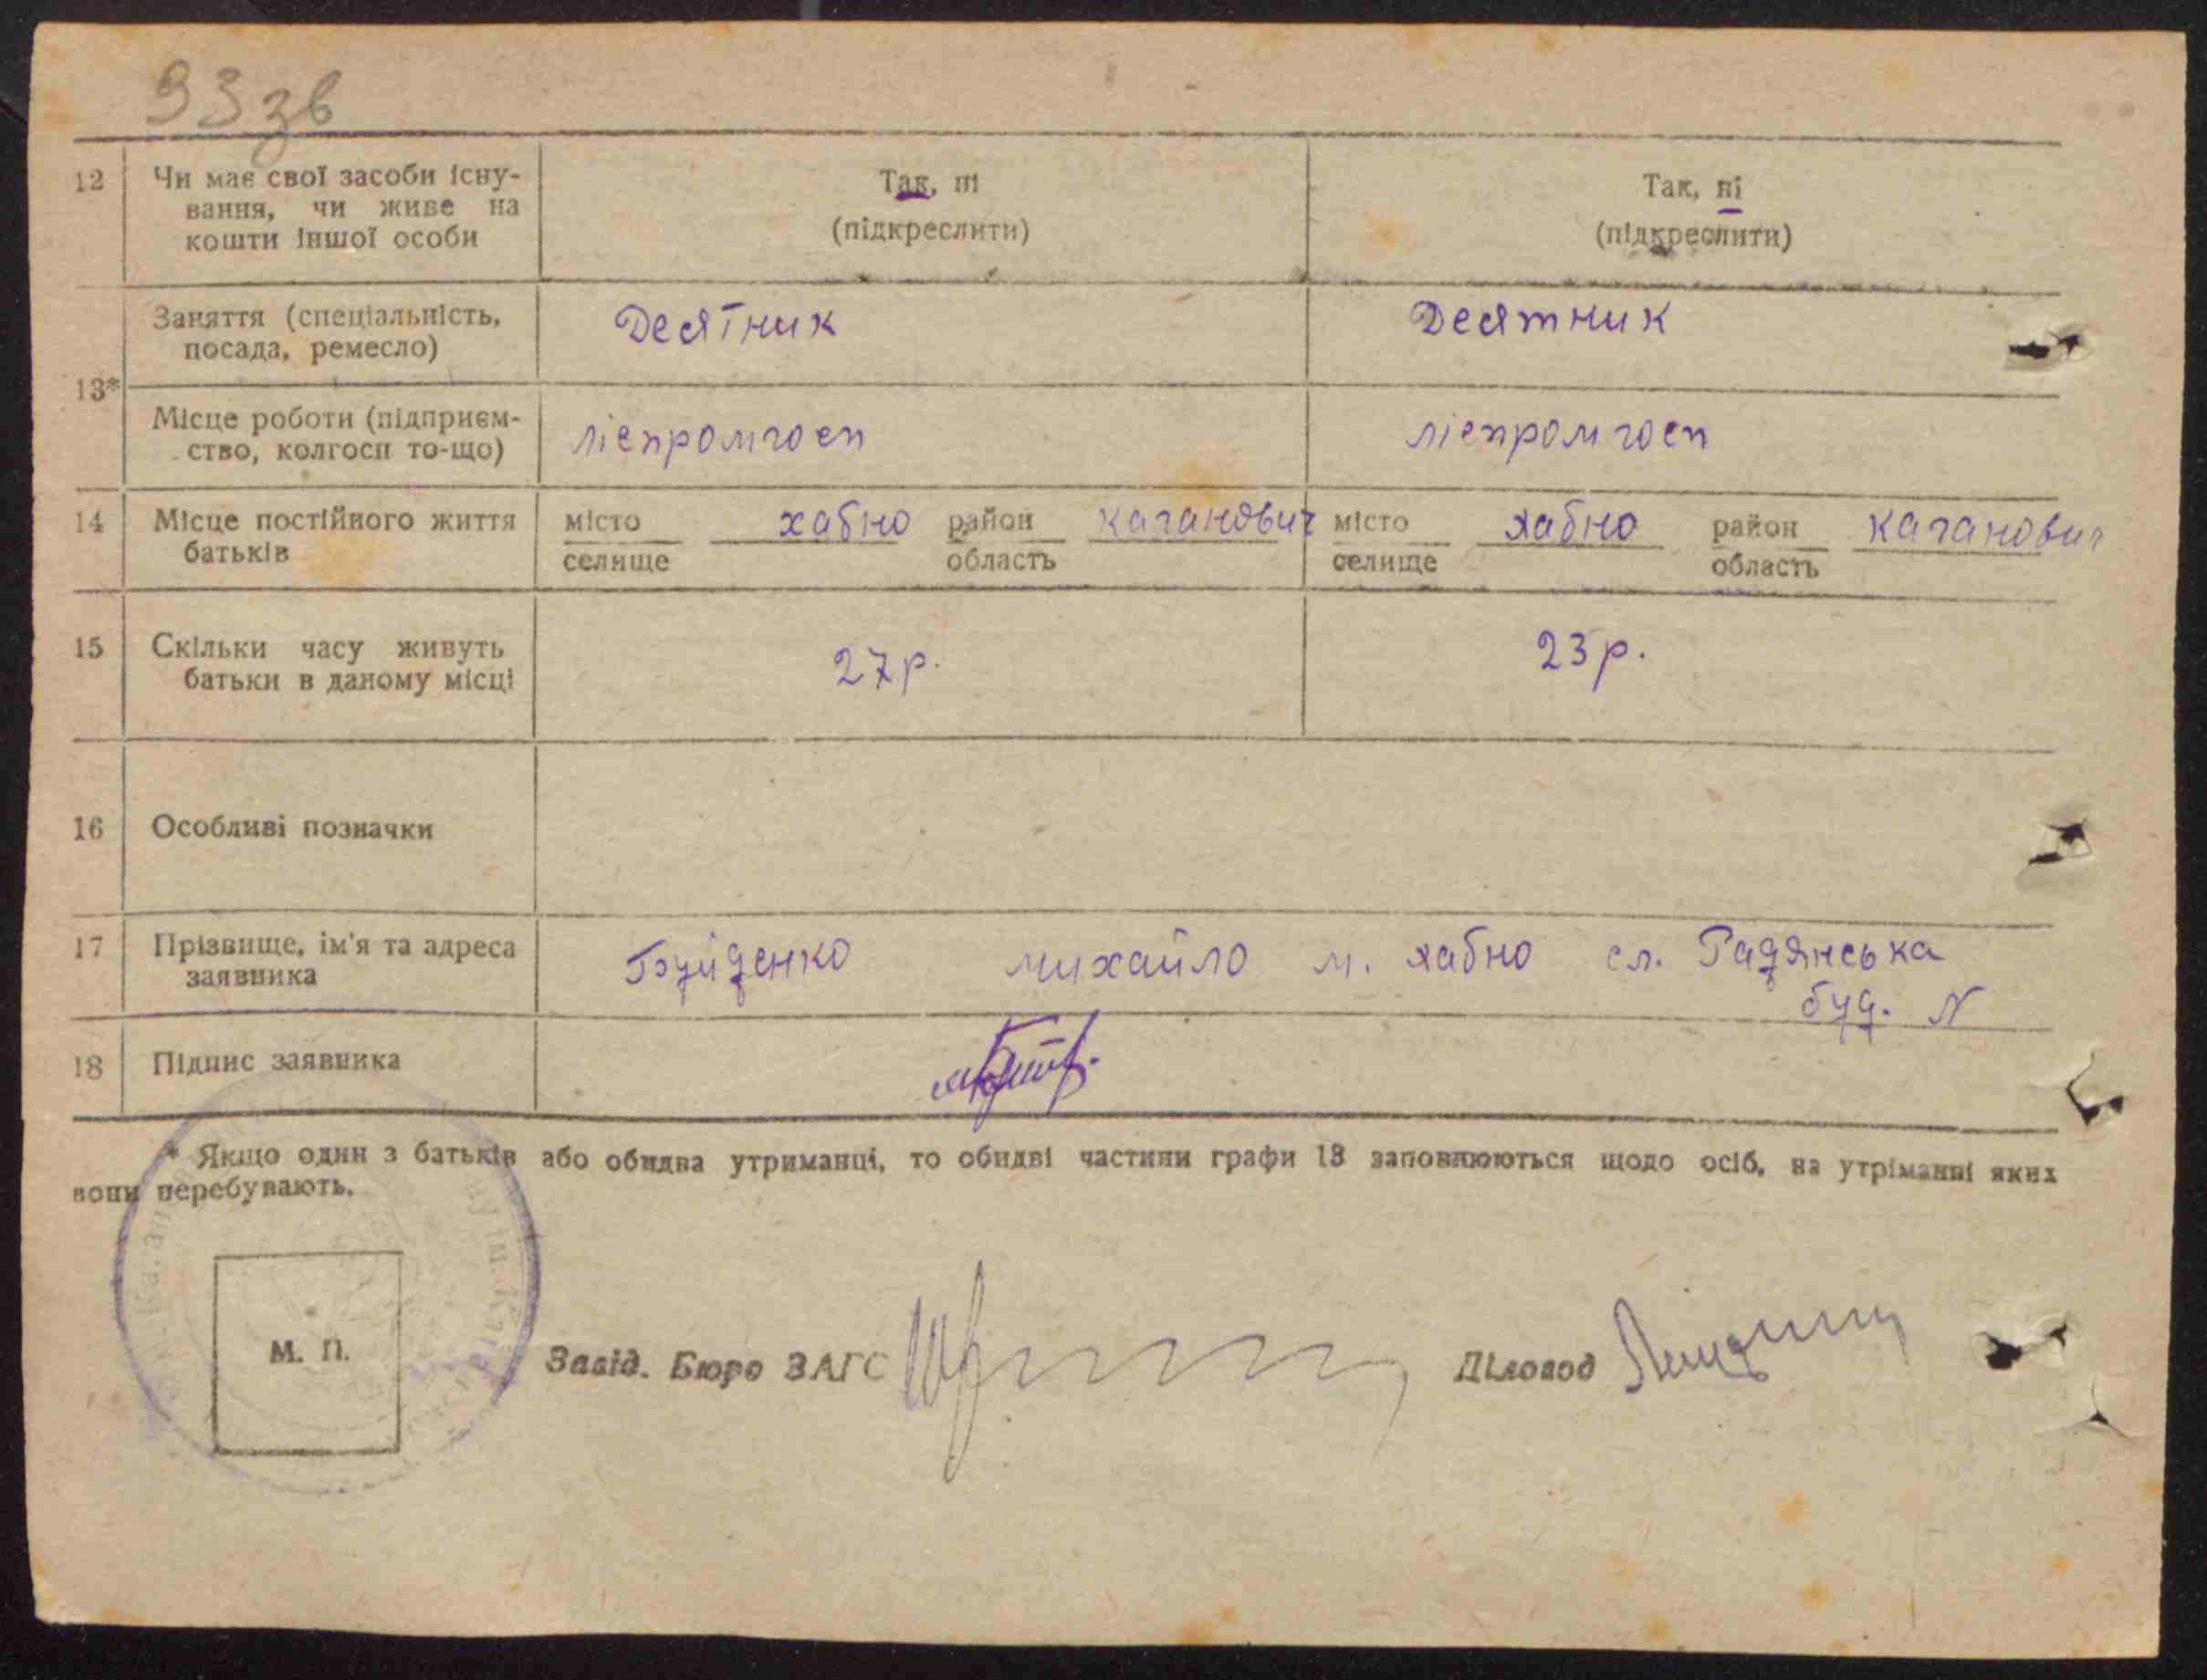 93 зв
12 Чи має свої засоби існу- Так, ні Так, ні
вання, чи живе на (підкреслити) (підкреслити)
кошти іншої особи
Заняття (спеціальність, Десятник Десятник
посада, ремесло)
13*
Місце роботи (підприєм- ліспромгосп ліспромгосп
ство, колгосп то-що)
14 Місце постійного життя місто хабно район каганович місто хабно район каганович
батьків селище область селище область
15 Скільки часу живуть 27р. 23р.
батьки в даному місці
16 Особливі позначки
17 Прізвище, ім'я та адреса михайло м. хабно Радянська
заявника буд. N
18 Підпис заявника
* Якщо один з батьків або обидва утриманці, то обидві частини графи 13 заповнюються щодо осіб, на утріманні яких
вони перебувають.
М. П. Завід. Бюро ЗАГС Діловод